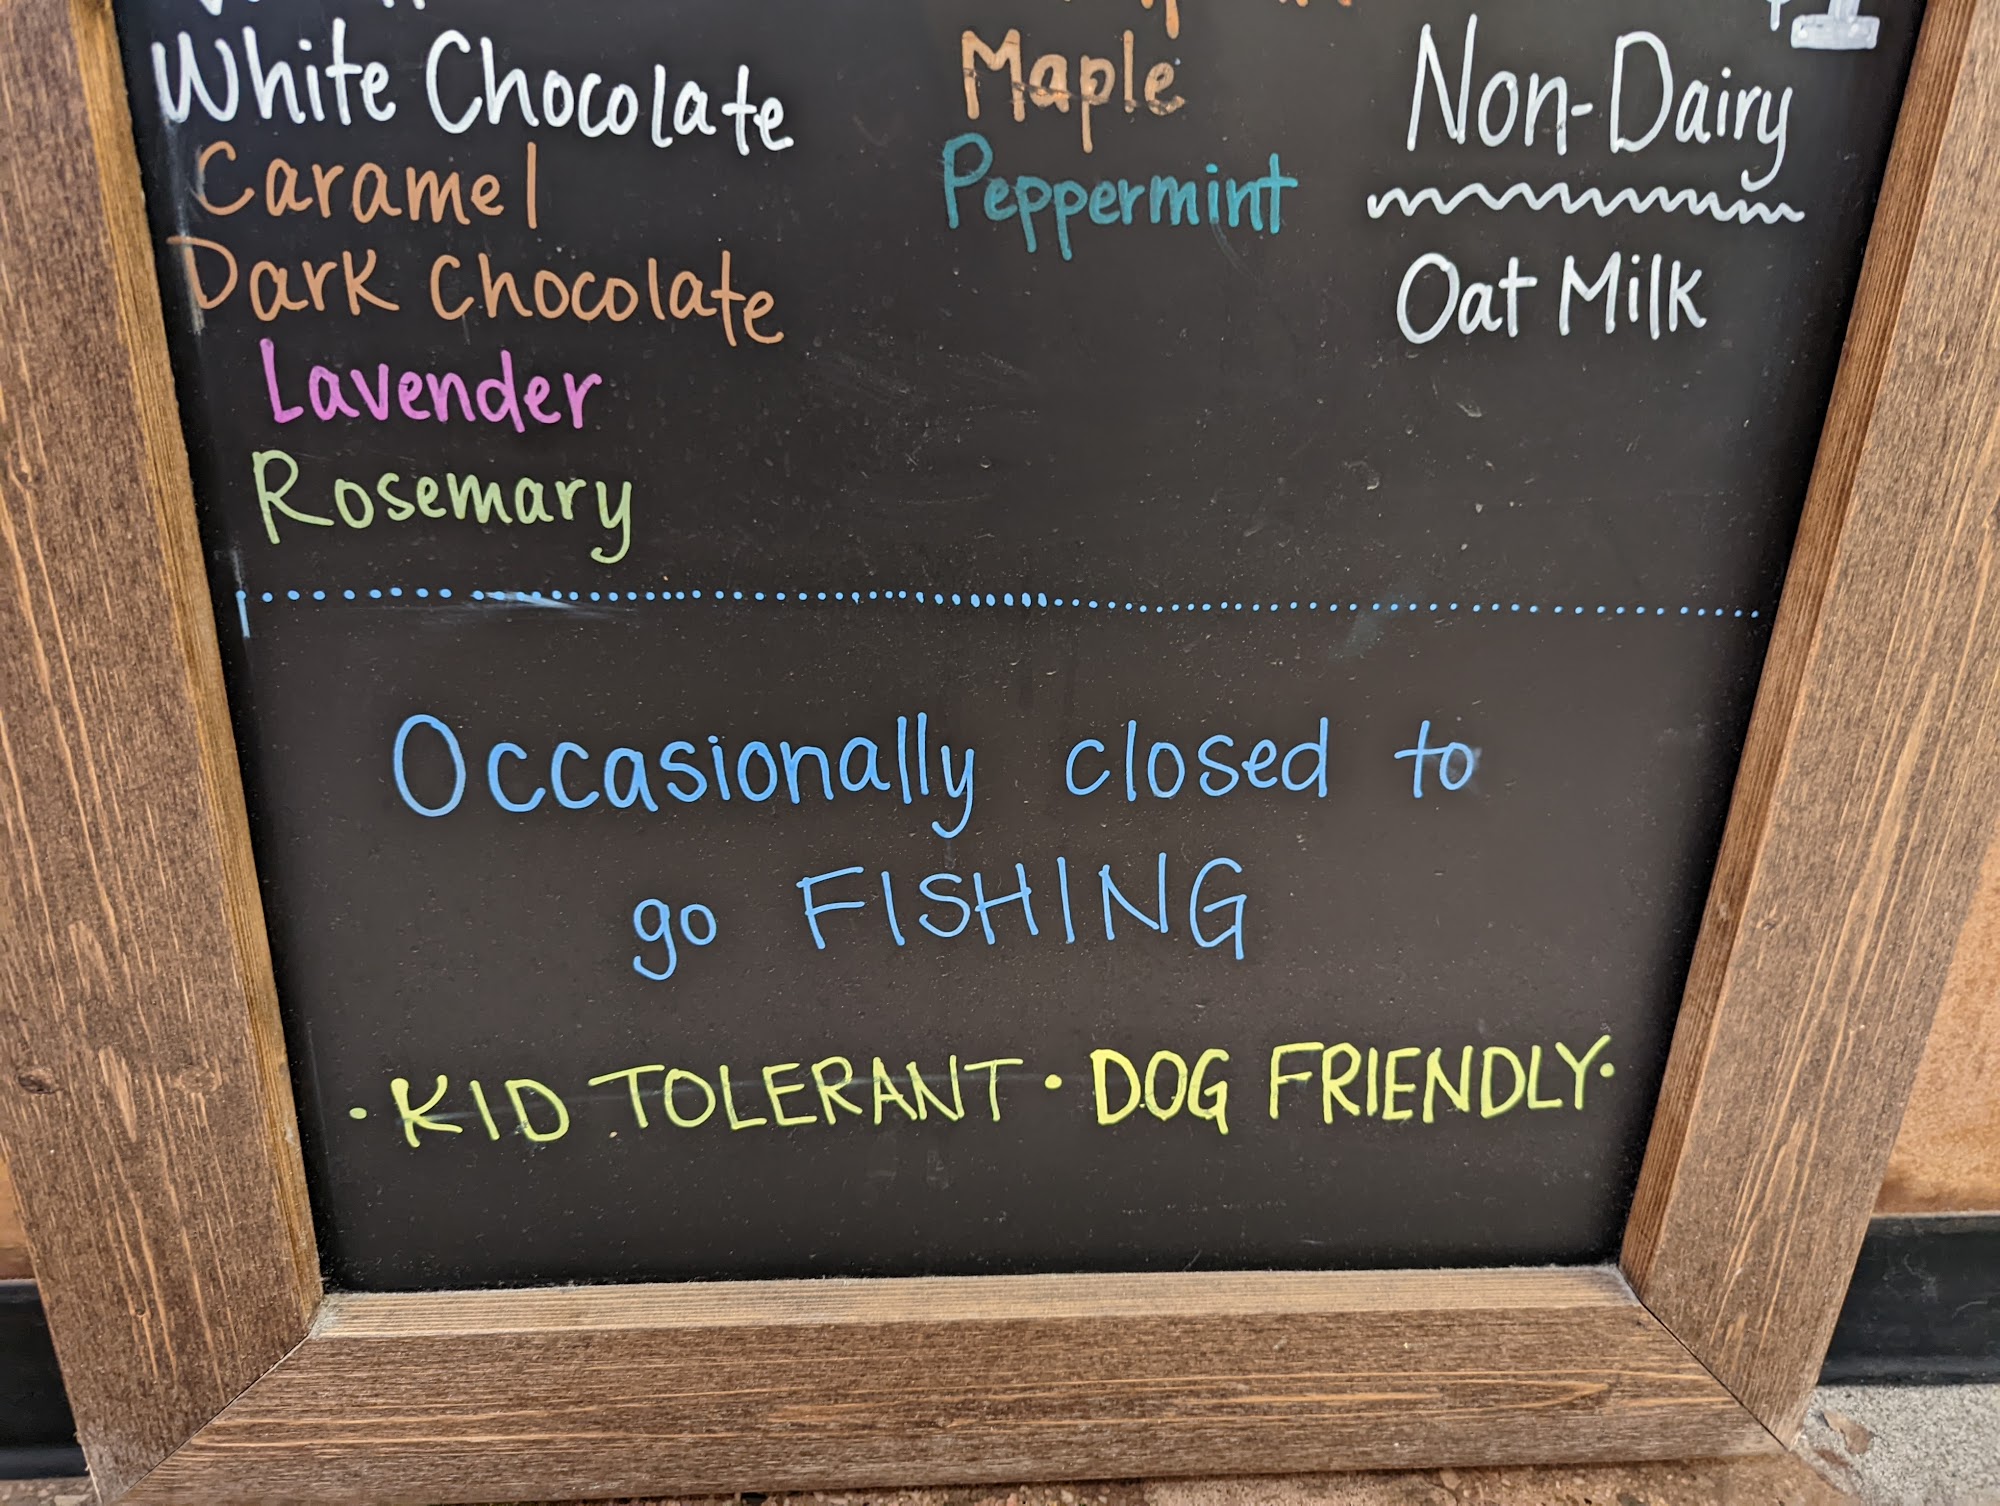 White Chocolate
Caramel
Dark Chocolate
Lavender
Rosemary
Maple
Peppermint
Non-Dairy
Oat Milk
Occasionally closed to
go FISHING
· KID TOLERANT · DOG FRIENDLY ·